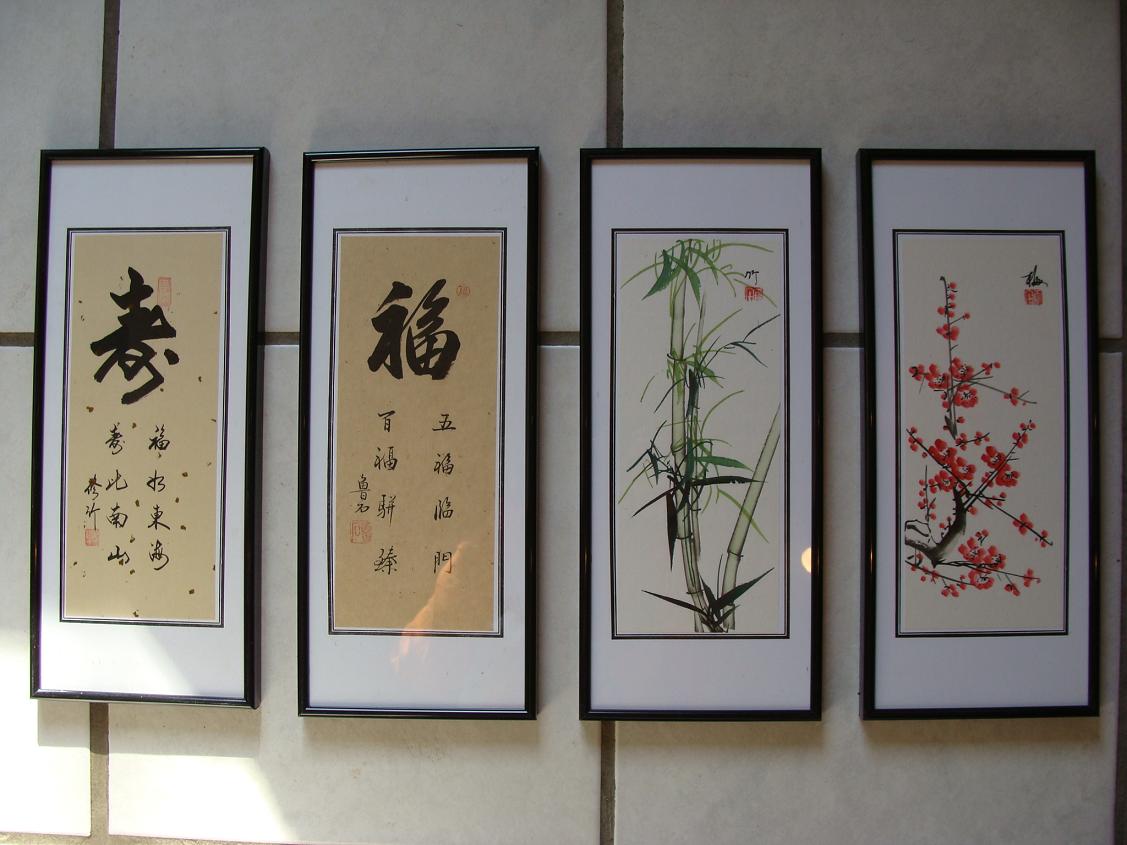 壽
福如東海
壽比南山
修竹
福
五福臨門
百福駢臻
魯石
竹
梅